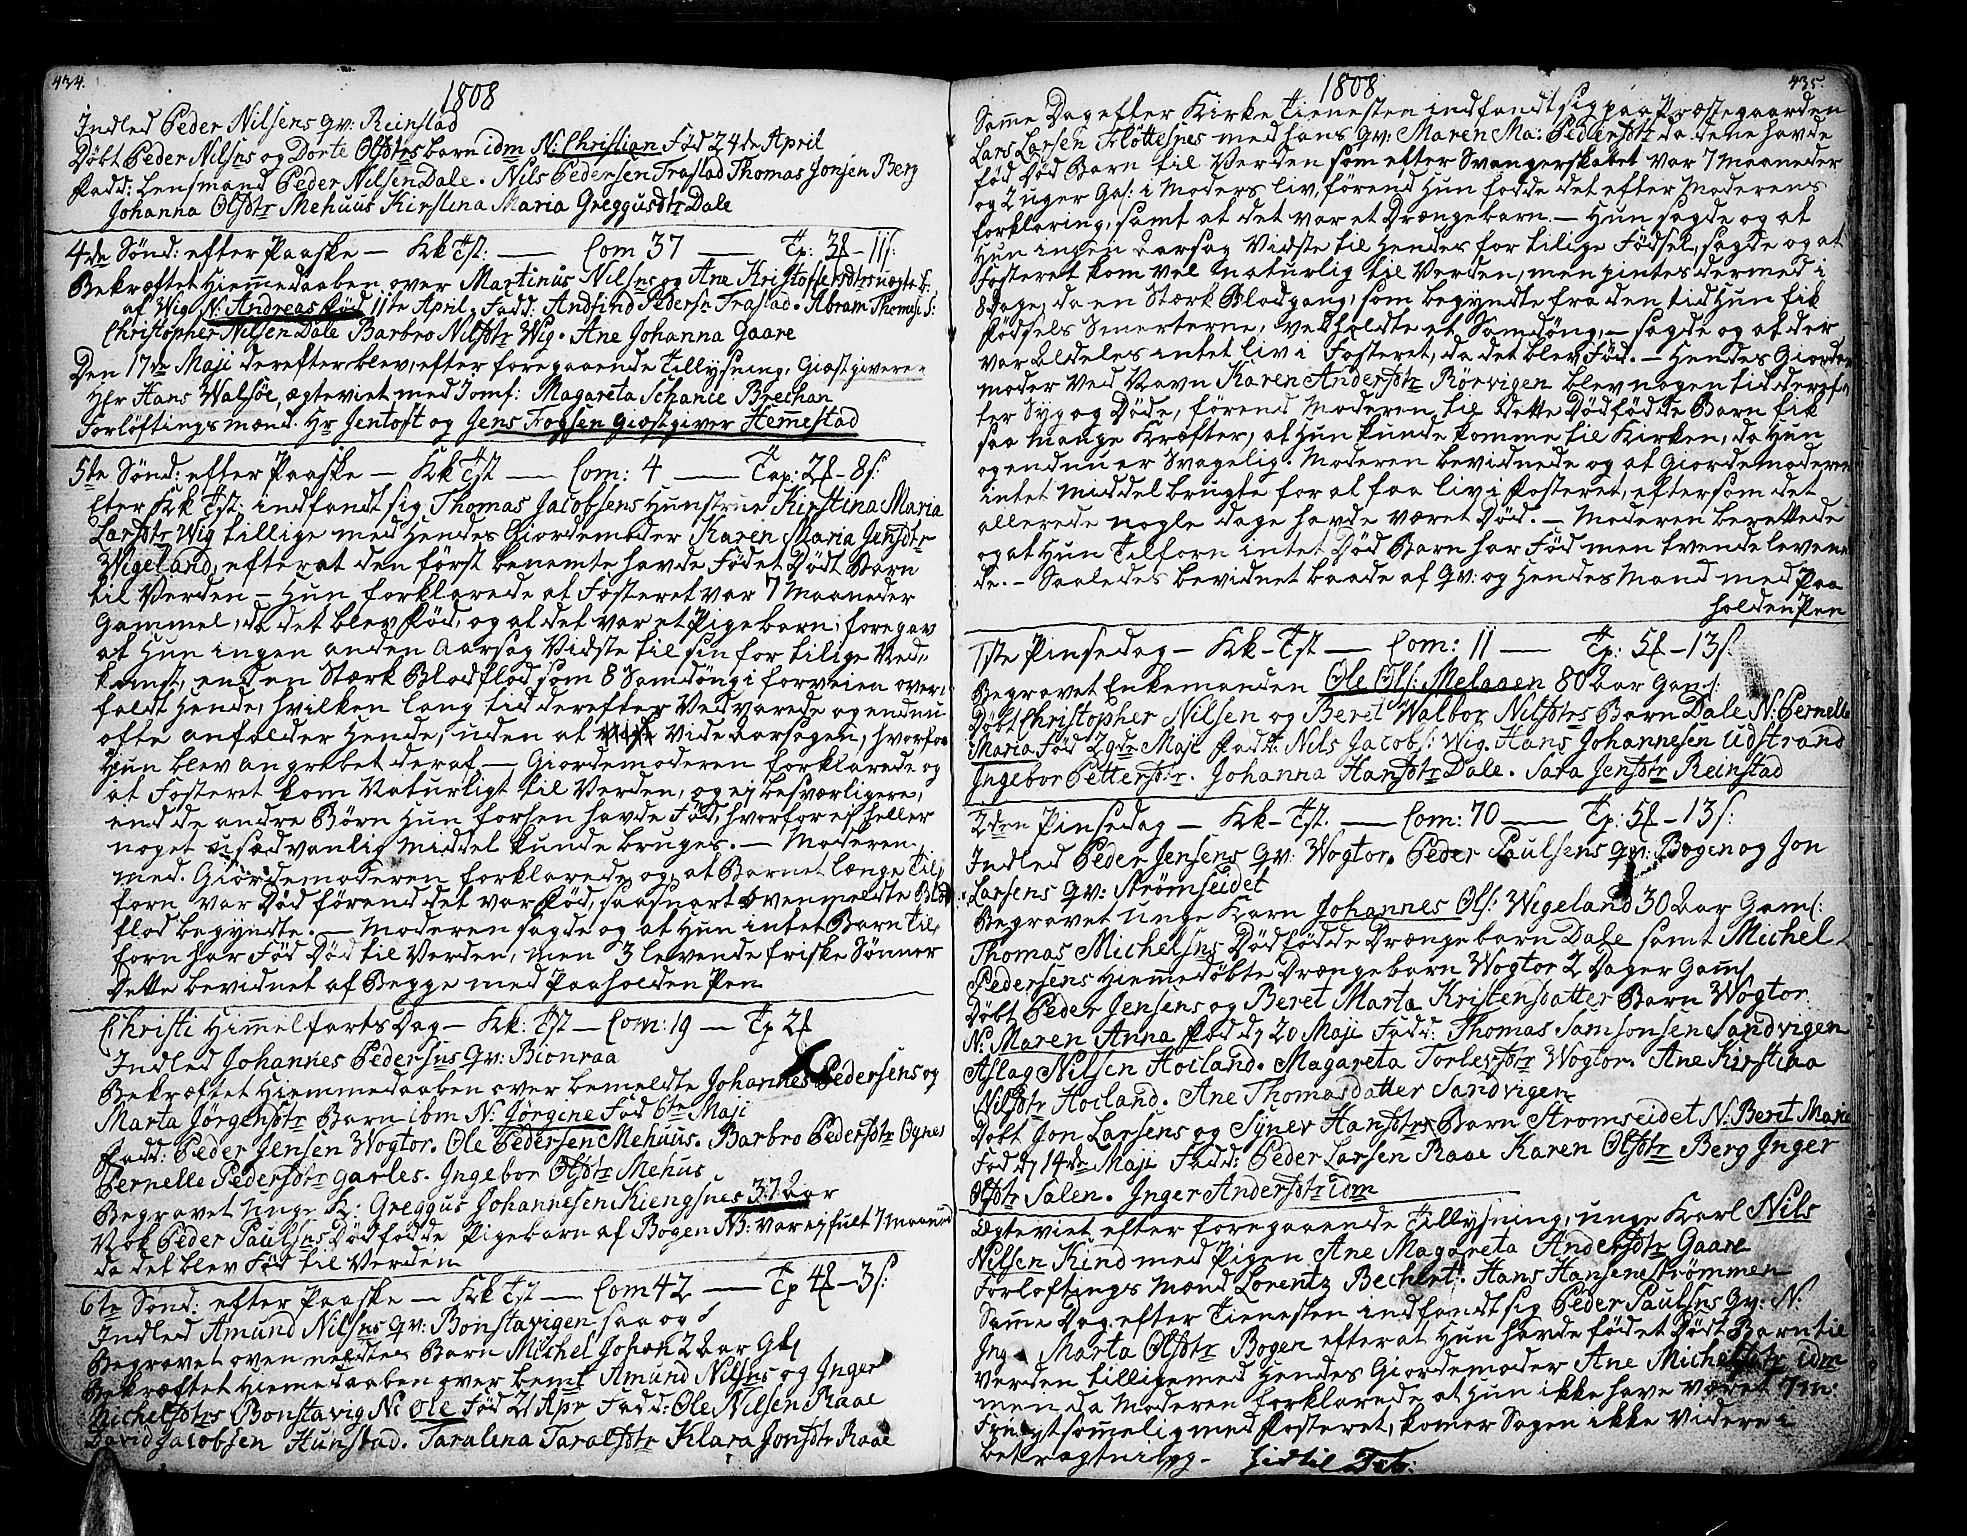 434.
1808
Indled Peder Nilsens qv: Reinstad
Døbt Peder Nilsns og Dorte Olsdtrs barn idm N: Christian Fød 24de April
Fadd: Lensmand Peder Nilsen Dale. Nils Pedersen Frastad Thomas Jonsen Berg
Johanna Olsdtr Mehuus Kirstina Maria Greggusdtr Dale
4de Sønd: efter Paaske — Kk Tst: — Com 37 — Tp: 3f — 11s:
Bekræftet Hiemedaaben over Martinus Nilsns og Ane Kristofersdtrs uegte b:
af Wig N: Andreas Fød 11te April, Fadd: Andfind Pedersn Frastad. Abram Thomas S:
Christopher Nilsen Dale Barbro Nilsdtr Wig. Ane Johanna Gaare
Den 17de Maji derefter blev, efter foregaaende Tillysning, Giæstgivere
Hr Hans Walsøe, ægteviet med Jomf: Magareta Schance Brechan
Forløftingsmænd. Hr Jentoft og Jens Fogsen giæstgiver Hemestad
5te Sønd: efter Paaske — Kk Tst — Com: 4 — Tap: 2f — 8s:
Efter Kk Tst: indfandt sig Thomas Jacobsens Hunstrue Kirstina Maria
Larsdtr Wig tillige med Hendes Giordemoder Karen Maria Jensdtr
Wigeland, efter at den først benemte havde Fødet Dødt Barn
til Verden — Hun forklarede at Fosteret var 7 Maaneder
Gammel, da det blev Fød, og at det var et Pigebarn; foregav
at Hun ingen anden Aarsag Vidste til sin for tilige Ned-
komst, end en Stærk Blodflod som 8 Samdøngi forveien over-
faldt Hende, hvilken lang tid derefter Vedvarede og endnu
ofte anfalder Hende, uden at vide Aarsagen, hvorfor
Hun blev angrebet deraf. — Giordemoderen forklarede og
at Fosteret kom Naturligt til Verden, og ej besværligere,
end de andre Børn Hun forhen havde Fød, hvorfor ej heller
noget usædvanlig middel kunde bruges. — Moderen
med Giordemoderen forklarede og, at Barnet længe til-
forn var Død førend det var Fød, saasnart ovenmeldte Blod
flod begyndte. — Moderen sagde og at Hun intet Barn til-
forn har Fød Død til Verden, men 3 levende friske Sønner
Dette bevidnet af Begge med Paaholden Pen
Christi Himmelfarts Dag — Kk: Tst — Com: 19 — Tp 2f
Indled Johannes Pedersns qv: Bionraa
Bekræftet Hiemmedaaben over bemeldte Johannes Pedersens og
Marta Jørgensdtr Barn ibm N: Jørgine Fød 6te Maji
Fadd: Peder Jensen Wogtor. Ole Pedersen Mehuus. Barbro Pedersdtr Øynes
Pernelle Pedersdtr Garles. Ingebor Olsdtr Mehus
Begravet Unge K: Greggus Johannesen Kiengsnes 37 Aar
Nok Peder Paulsns Dødfødde Pigebarn af Bogen NB: var ej fult 7 maaned
da det blev Fød til Verden
6te Sønd: efter Paaske — Kk Tst — Com 42 — Tp 4f — 3s:
Indled Amund Nilsns qv: Bonstavigen saa og
Begravet ovenmeldtes Barn Michel Johan 2 Aar Gl
Bekræftet Hiemedaaben over bemt Amund Nilsns og Inger
Michelsdtrs Bonstavig N: Ole Fød 21 Apr Fadd: Ole Nilsen Raae
David Jacobsen Hunstad. Taralena Taralsdtr Klara Jonsdtr Raae
435.
1808
Same Dag efter Kirke Tienesten indfandt sig paa Præstegaarden
Lars Larsen Fløttesnes med hans qv: Maren Ma: Pedersdtr da dene havde
fød Død Barn til Verden som efter Svangerskabet var 7 Maaneder
og 2 uger Ga: i Moders liv, førend Hun fødde det efter Moderens
forklaring, samt at det var et Drængebarn. — Hun sagde og at
Hun ingen Aarsag Vidste til Hendes for tilige Fødsel, sagde og at
Fosteret kom vel Naturlig til Verden, men pintes dermed i
8 dage, da en Stærk Blodgang, som begyndte fra den tid Hun fik
Fødsels Smerterne, vedholdte et Samdøng, — sagde og at der
var aldeles intet liv i Fosteret, da det blev Fød. — Hendes Giorde
moder ved Navn Karen Andersdtr Rörvigen blev nogen tid deref-
ter Syg og Døde, førend Moderen til dette Dødfødde Barn fik
saa mange Kræfter, at Hun kunde komme til Kirken, da Hun
og endnu er Svagelig. Moderen bevidnede og at Giordemoderen
intet middel brugte for at faa liv i Fosteret, eftersom det
allerede nogle dage havde været Død. — Moderen berettede
og at Hun Tilforn intet Død Barn har Fød men tvende leven
de. — Saaledes bevidnet baade af qv: og Hendes Mand med Paa
holden Pen
1ste Pinsedag — Kk-Tst — Com: 11 — Tp: 5f — 13s:
Begravet Enkemanden Ole Ols: Melaaen 80 Aar Gaml:
Døbt Christopher Nilsen og Beret Walbor Nilsdtrs Barn Dale N: Pernelle
Maria Fød 29de Maji Fadd: Nils Jacobs: Wig. Hans Johannesen Udstrand
Ingebor Pettersdtr. Johanna Hansdtr Dale. Sara Jensdtr Reinstad
2den Pinsedag — Kk-Tst. — Com: 70 — Tp: 5f — 13s:
Indled Peder Jensens qv: Wogtor. Peder Paulsens qv: Bogen og Jon
Larsens qv: Strømseidet
Begravet unge Karn Johannes Ols: Wigeland 30 Aar Gaml:
Thomas Michelsns Dødfødde Drængebarn Dale samt Michel
Pedersens Hiemedøbte Drængebarn Wogtor 2 Dager Gaml
Døbt Peder Jensens og Beret Marta Kristensdatter Barn Wogtor
N: Maren Anna Fød d 20 Maji Fadd: Thomas Samsonsen Sandvigen
Aslag Nilsen Hoiland. Magareta Torlevsdtr Wogtor. Ane Kirstina
Nilsdtr Hoiland. Ane Thomasdatter Sandvigen
Døbt Jon Larsens og Synev Hansdtrs Barn Strømseidet N: Berit Marie
Fød d 14de Maji Fadd: Peder Larsen Raae Karen Olsdtr Berg Inger
Olsdtr Salen. Inger Andersdtr idm
Ægteviet efter foregaaende Tillysning, unge Karl Nils
Nilsen Kind med Pigen Ane Magareta Andersdtr Gaare
Forløftings Mænd Lorentz Bechert. Hans Hansen Strømmen
Same Dag efter Tienesten indfandt sig Peder Paulsns qv: N:
Ing Marta Olsdtr Bogen efter at Hun havde fødet Dødt Barn til
Verden tilligemed Hendes Giordemoder Ane Michelsdtr idm
men da Moderen forklarede at Hun ikke have været 7 m:
Frugtsomelig med Fosteret, komer Sagen ikke Videre i
bekragtning —